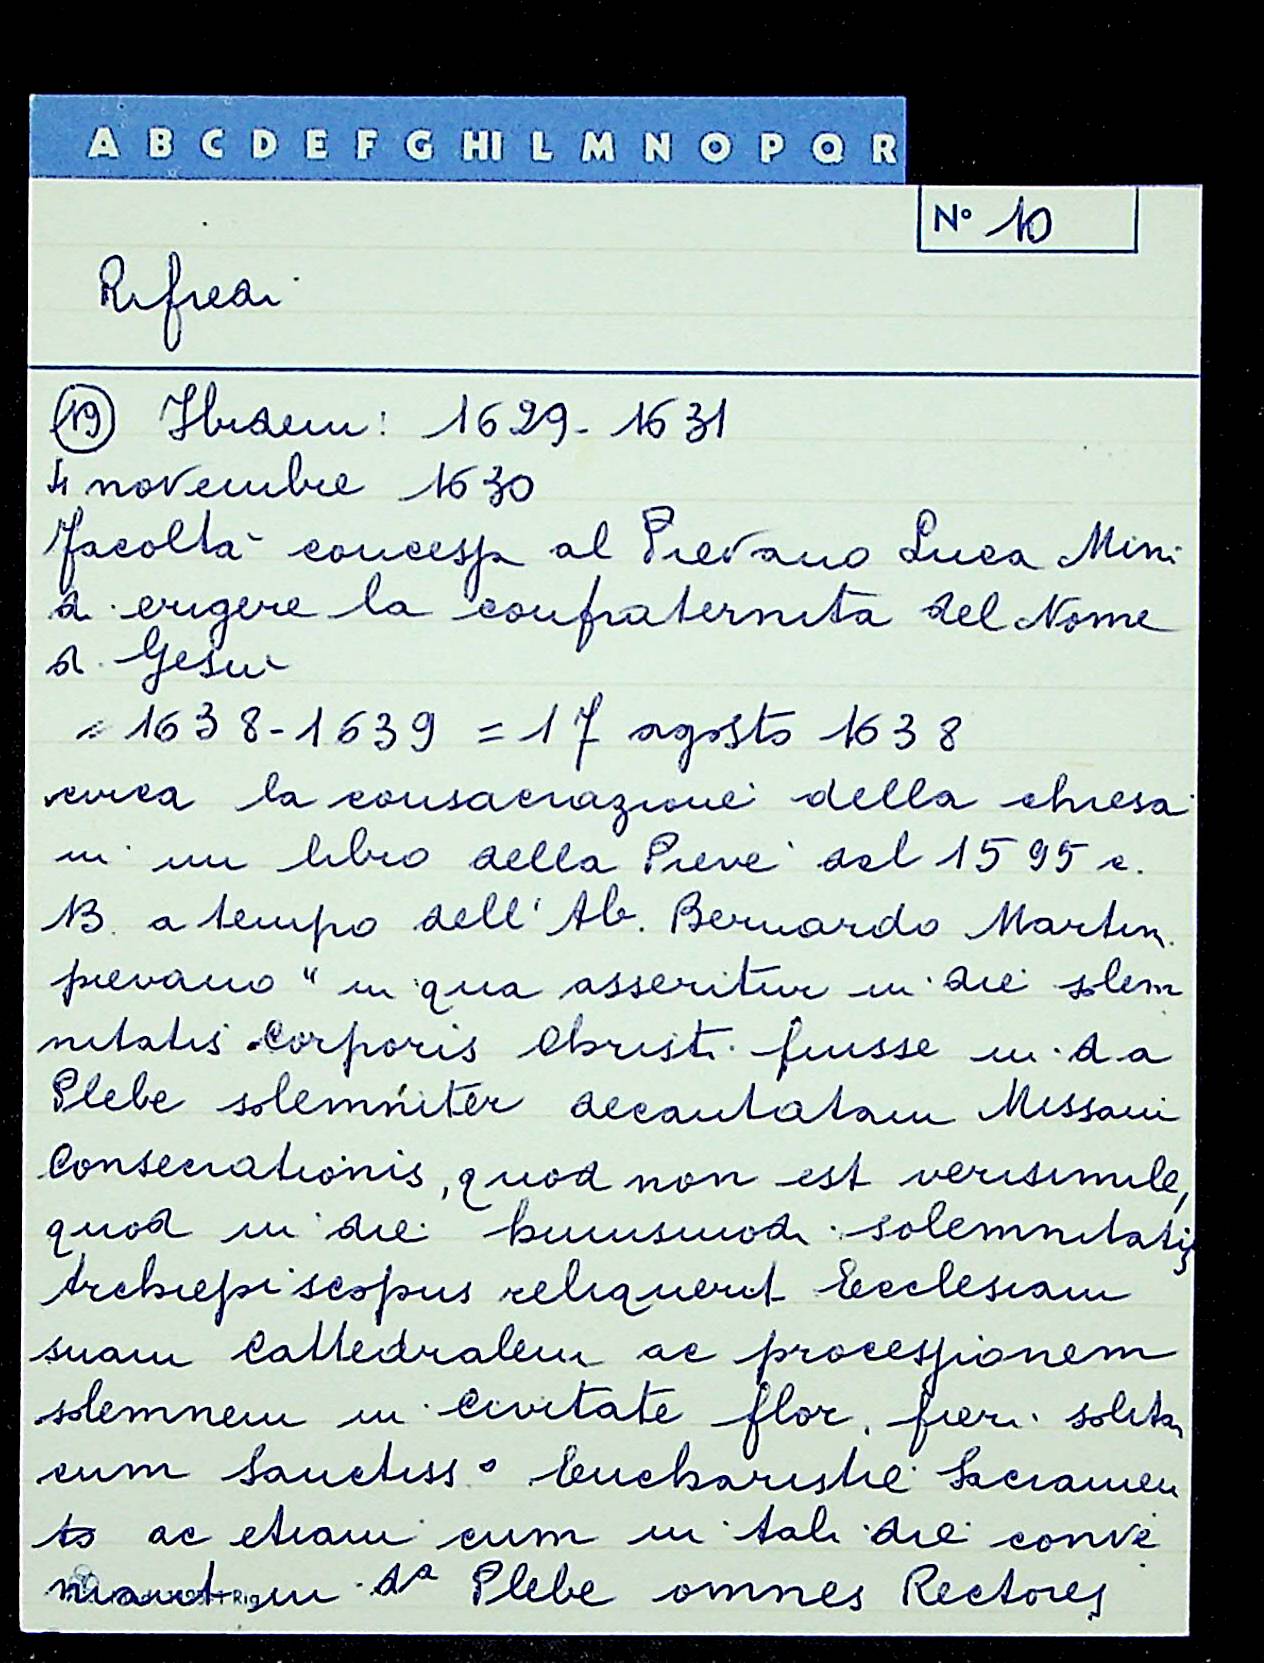 A B C D E F G HI L M N O P Q R
N° 10
Rifredi
19 Ibidem: 1629-1631
4 novembre 1630
Facoltà concessa al Pievano Luca Mini
di erigere la confraternita del Nome
di Gesù
= 1638-1639 = 17 agosto 1638
circa la consacrazione della chiesa
in un libro della Pieve del 1595 c.
13. a tempo dell' Ab. Bernardo Martini
pievano " in qua asseritur in die solem
nitatis Corporis Christi fuisse in d a
Plebe solemniter decantatam Missam
Consecrationis, quod non est verisimile,
quod in die huiusmodi solemnitatis
Archiepiscopus reliquerit Ecclesiam
suam Cattedralem ac processionem
solemnem in Civitate flor. fieri solita
cum Sanctiss° Eucharistie Sacramen
to ac etiam cum in tali die conve
niant in da Plebe omnes Rectores